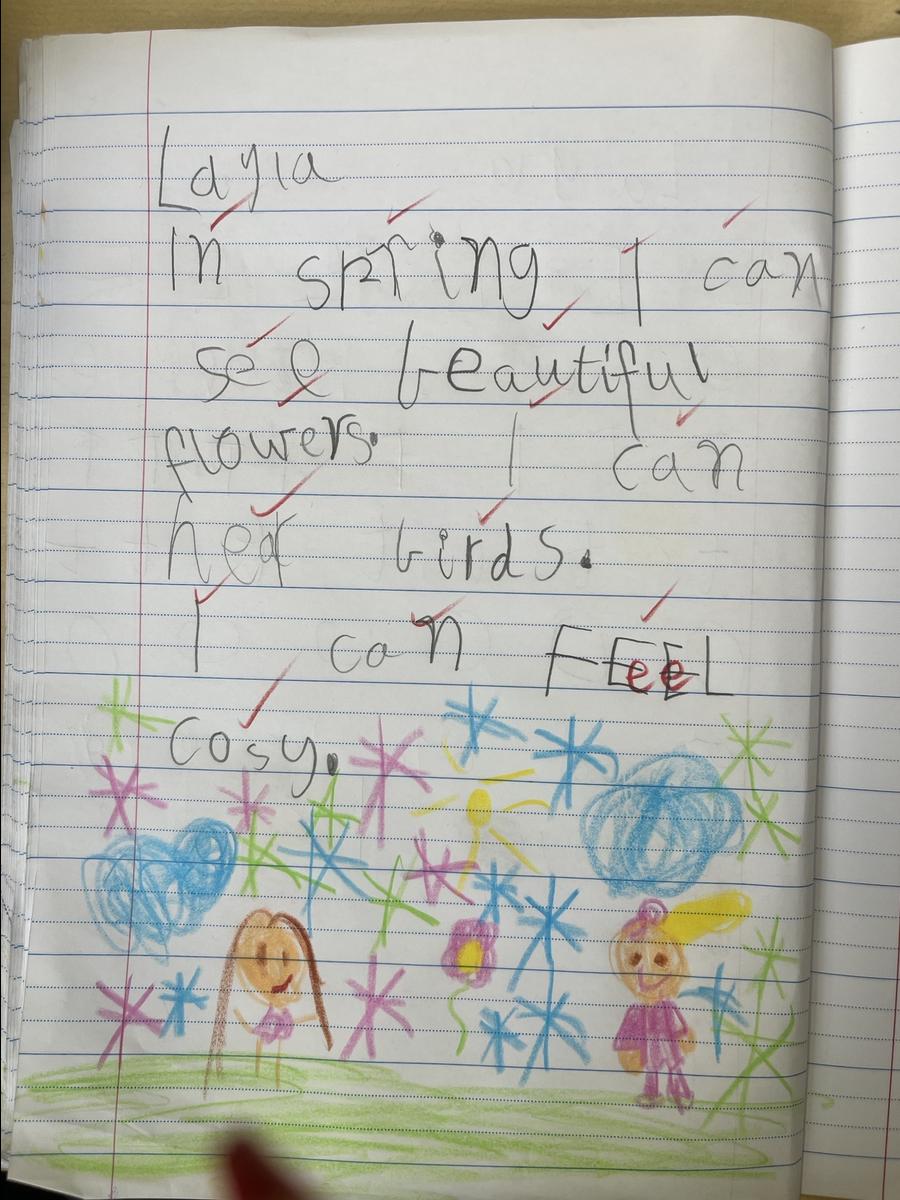 Layla
In spring I can
see beautiful
flowers. I can
hear birds.
I can FEEL
cosy.